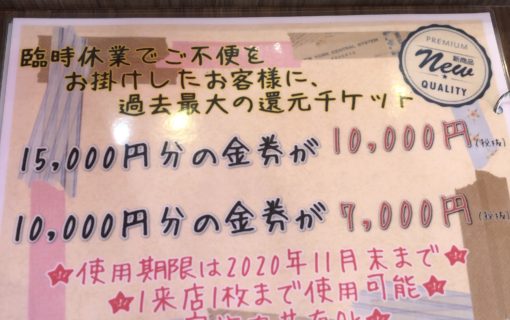 臨時休業でご不便を
お掛けしたお客様に、
過去最大の還元チケット
PREMIUM
New
新商品
QUALITY
15,000円分の金券が 10,000円(税抜)
10,000円分の金券が 7,000円(税抜)
★使用期限は2020年11月末まで★
★1来店1枚まで使用可能★